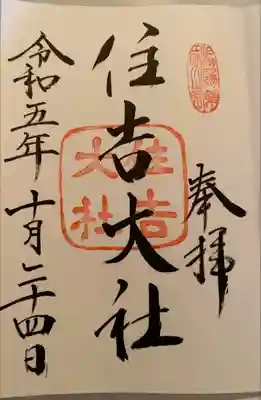 奉拝
住吉大社
住吉
大社
令和五年 十月二十四日